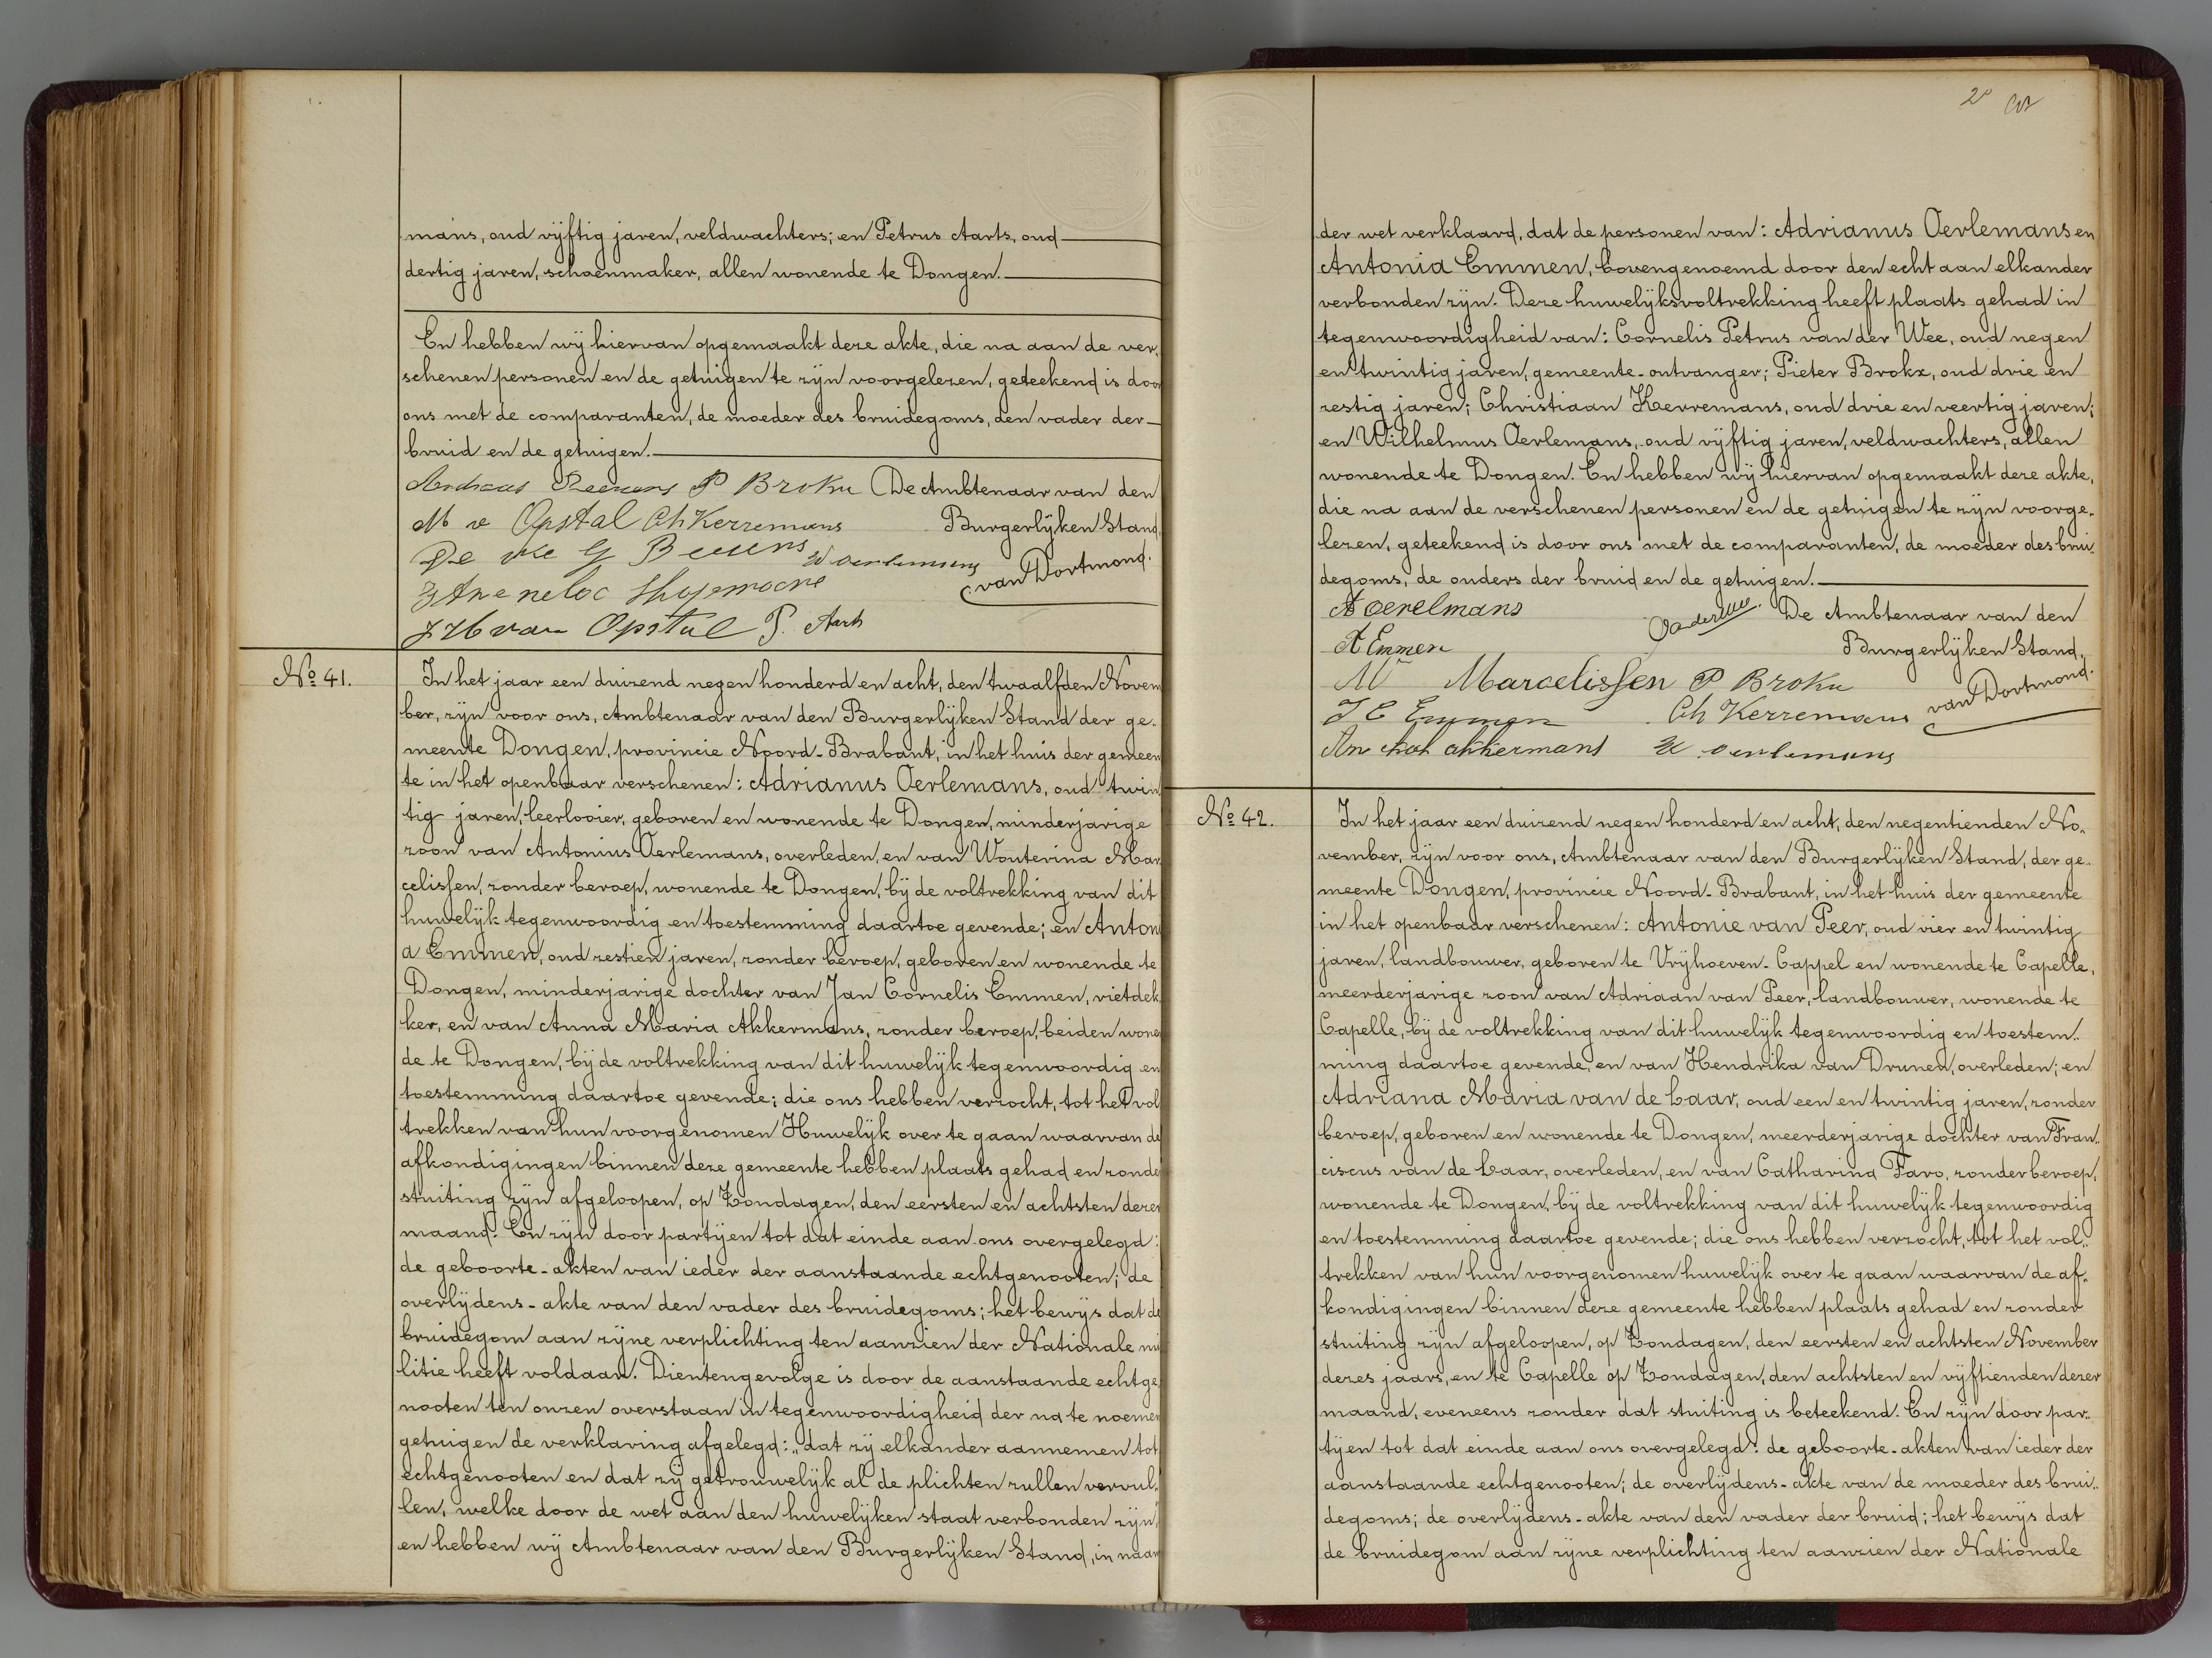 mans, oud vijftig jaren, veldwachters; en Petrus Aarts, oud
dertig jaren, schoenmaker, allen wonende te Dongen.
En hebben wij hiervan opgemaakt deze akte, die na aan de ver-
schenen personen en de getuigen te zijn voorgelezen, geteekend is door
ons met de comparanten, de moeder des bruidegoms, den vader der
bruid en de getuigen.
Andreas P Brokx De Ambtenaar van den
M v Opstal Ch Kerremans Burgerlijken Stand,
De we G W oerlemans van Dortmond.
J H van Opstal P. Aarts
No 41.
In het jaar een duizend negen honderd en acht, den twaalfden Novem
ber, zijn voor ons, Ambtenaar van den Burgerlijken Stand der ge-
meente Dongen, provincie Noord-Brabant, in het huis der gemeen
te in het openbaar verschenen: Adrianus Oerlemans, oud twin
tig jaren, leerlooier, geboren en wonende te Dongen, minderjarige
zoon van Antonius Oerlemans, overleden, en van Wouterina Mar
celissen, zonder beroep, wonende te Dongen, bij de voltrekking van dit
huwelijk tegenwoordig en toestemming daartoe gevende; en Anton
a Emmen, oud zestien jaren, zonder beroep, geboren en wonende te
Dongen, minderjarige dochter van Jan Cornelis Emmen, rietdek
ker, en van Anna Maria Akkermans, zonder beroep, beiden wonen
de te Dongen, bij de voltrekking van dit huwelijk tegenwoordig en
toestemming daartoe gevende; die ons hebben verzocht, tot het vol
trekken van hun voorgenomen Huwelijk over te gaan waarvan de
afkondigingen binnen deze gemeente hebben plaats gehad en zonder
stuiting zijn afgeloopen, op Zondagen, den eersten en achtsten dezer
maand. En zijn door partijen tot dat einde aan ons overgelegd:
de geboorte-akten van ieder der aanstaande echtgenooten; de
overlijdens-akte van den vader des bruidegoms; het bewijs dat de
bruidegom aan zijne verplichting ten aanzien der Nationale mi
litie heeft voldaan. Dientengevolge is door de aanstaande echtge
nooten ten onzen overstaan in tegenwoordigheid der na te noemen
getuigen de verklaring afgelegd: „dat zij elkander aannemen tot
echtgenooten en dat zij getrouwelijk al de plichten zullen vervul-
len, welke door de wet aan den huwelijken staat verbonden zijn,"
en hebben wij Ambtenaar van den Burgerlijken Stand, in naam
2e
der wet verklaard, dat de personen van: Adrianus Oerlemans en
Antonia Emmen, bovengenoemd door den echt aan elkander
verbonden zijn. Deze huwelijksvoltrekking heeft plaats gehad in
tegenwoordigheid van: Cornelis Petrus van der Wee, oud negen
en twintig jaren, gemeente-ontvanger; Pieter Brokx, oud drie en
zestig jaren; Christiaan Kerremans, oud drie en veertig jaren;
en Wilhelmus Oerlemans, oud vijftig jaren, veldwachters, allen
wonende te Dongen. En hebben wij hiervan opgemaakt deze akte,
die na aan de verschenen personen en de getuigen te zijn voorge-
lezen, geteekend is door ons met de comparanten, de moeder des brui
degoms, de ouders der bruid en de getuigen.
A oerelmans De Ambtenaar van den
A Emmen Burgerlijken Stand,
M Marcelissen P Brokx van Dortmond.
J C Emmen Ch Kerremans
An akkermans W. oerlemans
No 42.
In het jaar een duizend negen honderd en acht, den negentienden No-
vember, zijn voor ons, Ambtenaar van den Burgerlijken Stand, der ge-
meente Dongen, provincie Noord-Brabant, in het huis der gemeente
in het openbaar verschenen: Antonie van Peer, oud vier en twintig
jaren, landbouwer, geboren te Vrijhoeven-Cappel en wonende te Capelle,
meerderjarige zoon van Adriaan van Peer, landbouwer, wonende te
Capelle, bij de voltrekking van dit huwelijk tegenwoordig en toestem-
ming daartoe gevende, en van Hendrika van Drunen, overleden; en
Adriana Maria van de Laar, oud een en twintig jaren, zonder
beroep, geboren en wonende te Dongen, meerderjarige dochter van Fran-
ciscus van de Laar, overleden, en van Catharina Faro, zonder beroep,
wonende te Dongen, bij de voltrekking van dit huwelijk tegenwoordig
en toestemming daartoe gevende; die ons hebben verzocht, tot het vol-
trekken van hun voorgenomen huwelijk over te gaan waarvan de af-
kondigingen binnen deze gemeente hebben plaats gehad en zonder
stuiting zijn afgeloopen, op Zondagen, den eersten en achtsten November
dezes jaars, en te Capelle op Zondagen, den achtsten en vijftienden dezer
maand, eveneens zonder dat stuiting is beteekend. En zijn door par-
tijen tot dat einde aan ons overgelegd: de geboorte-akten van ieder der
aanstaande echtgenooten; de overlijdens-akte van de moeder des brui-
degoms; de overlijdens-akte van den vader der bruid; het bewijs dat
de bruidegom aan zijne verplichting ten aanzien der Nationale